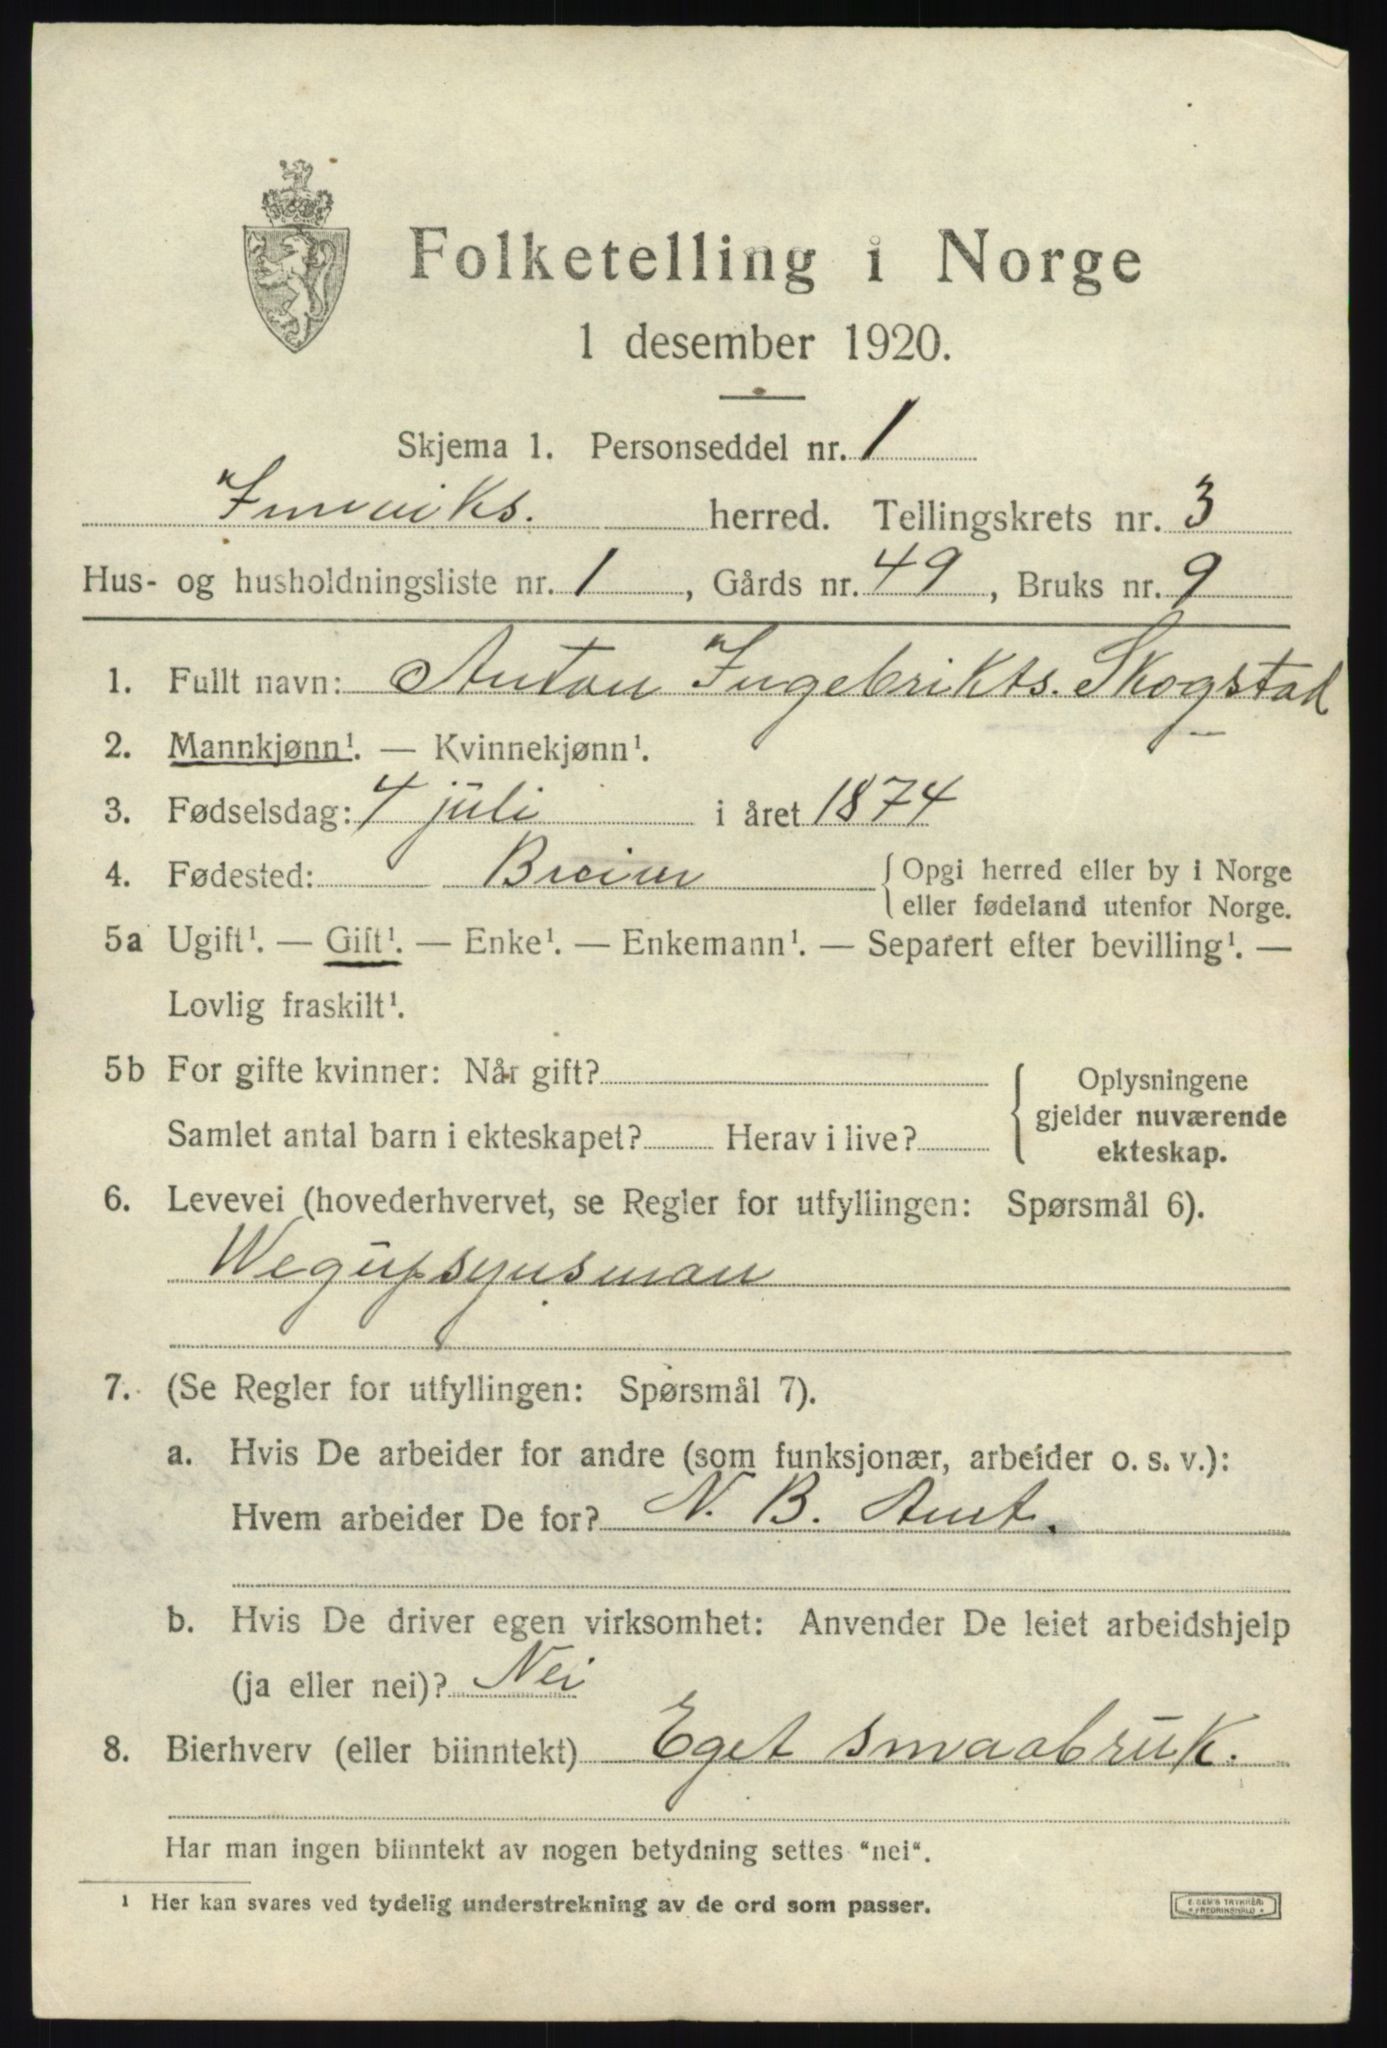 Folketelling i Norge
1 desember 1920.
Skjema 1. Personseddel nr. 1
Innviks. herred. Tellingskrets nr. 3
Hus- og husholdningsliste nr. 1, Gårds nr. 49, Bruks nr. 9
1. Fullt navn: Anton Ingebrikts. Skogstad
2. Mannkjønn¹. — Kvinnekjønn¹.
3. Fødselsdag: 4 juli i året 1874
4. Fødested: Breim { Opgi herred eller by i Norge
eller fødeland utenfor Norge.
5a Ugift¹. — Gift¹. — Enke¹. — Enkemann¹. — Separert efter bevilling¹. —
Lovlig fraskilt¹.
5b For gifte kvinner: Når gift? { Oplysningene
gjelder nuværende
Samlet antal barn i ekteskapet? Herav i live?
ekteskap.
6. Levevei (hovederhvervet, se Regler for utfyllingen: Spørsmål 6).
Wegupsynsman
7. (Se Regler for utfyllingen: Spørsmål 7).
a. Hvis De arbeider for andre (som funksjonær, arbeider o. s. v.):
Hvem arbeider De for? N. B. Amt.
b. Hvis De driver egen virksomhet: Anvender De leiet arbeidshjelp
(ja eller nei)? Nei
8. Bierhverv (eller biinntekt) Eget smaabruk.
Har man ingen biinntekt av nogen betydning settes "nei".
¹ Her kan svares ved tydelig understrekning av de ord som passer.